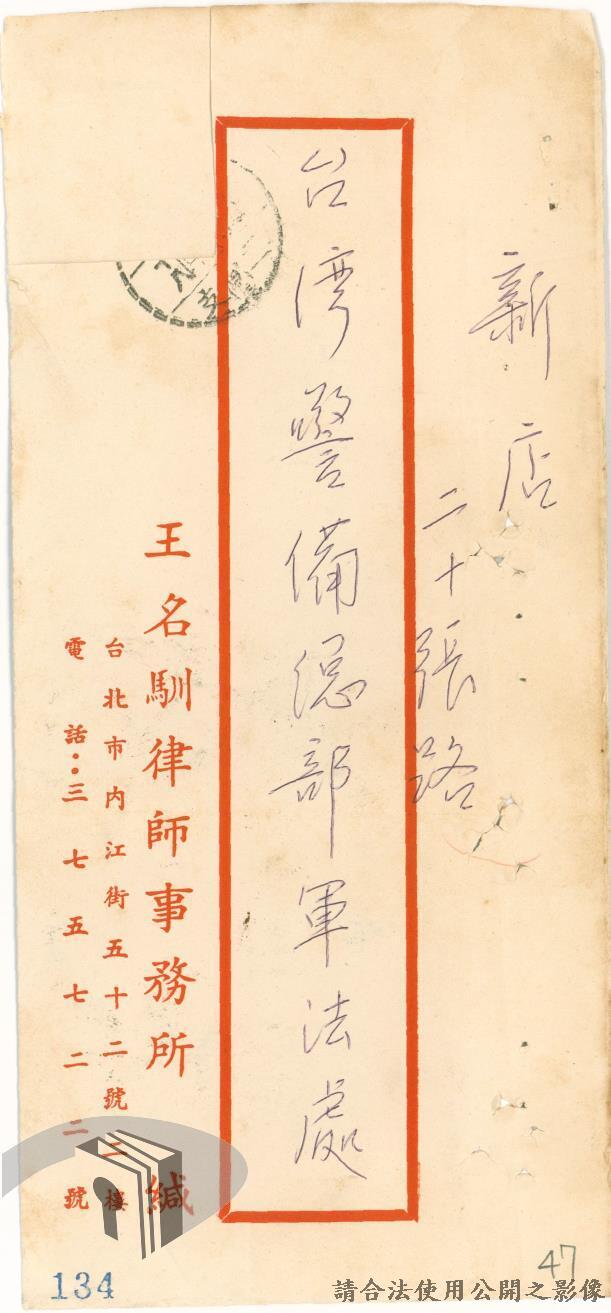 新店
二十張路
台湾警備總部軍法處
王名馴律師事務所 緘
台北市內江街五十二號二樓
電話：三七五七二二號
134
47
請合法使用公開之影像